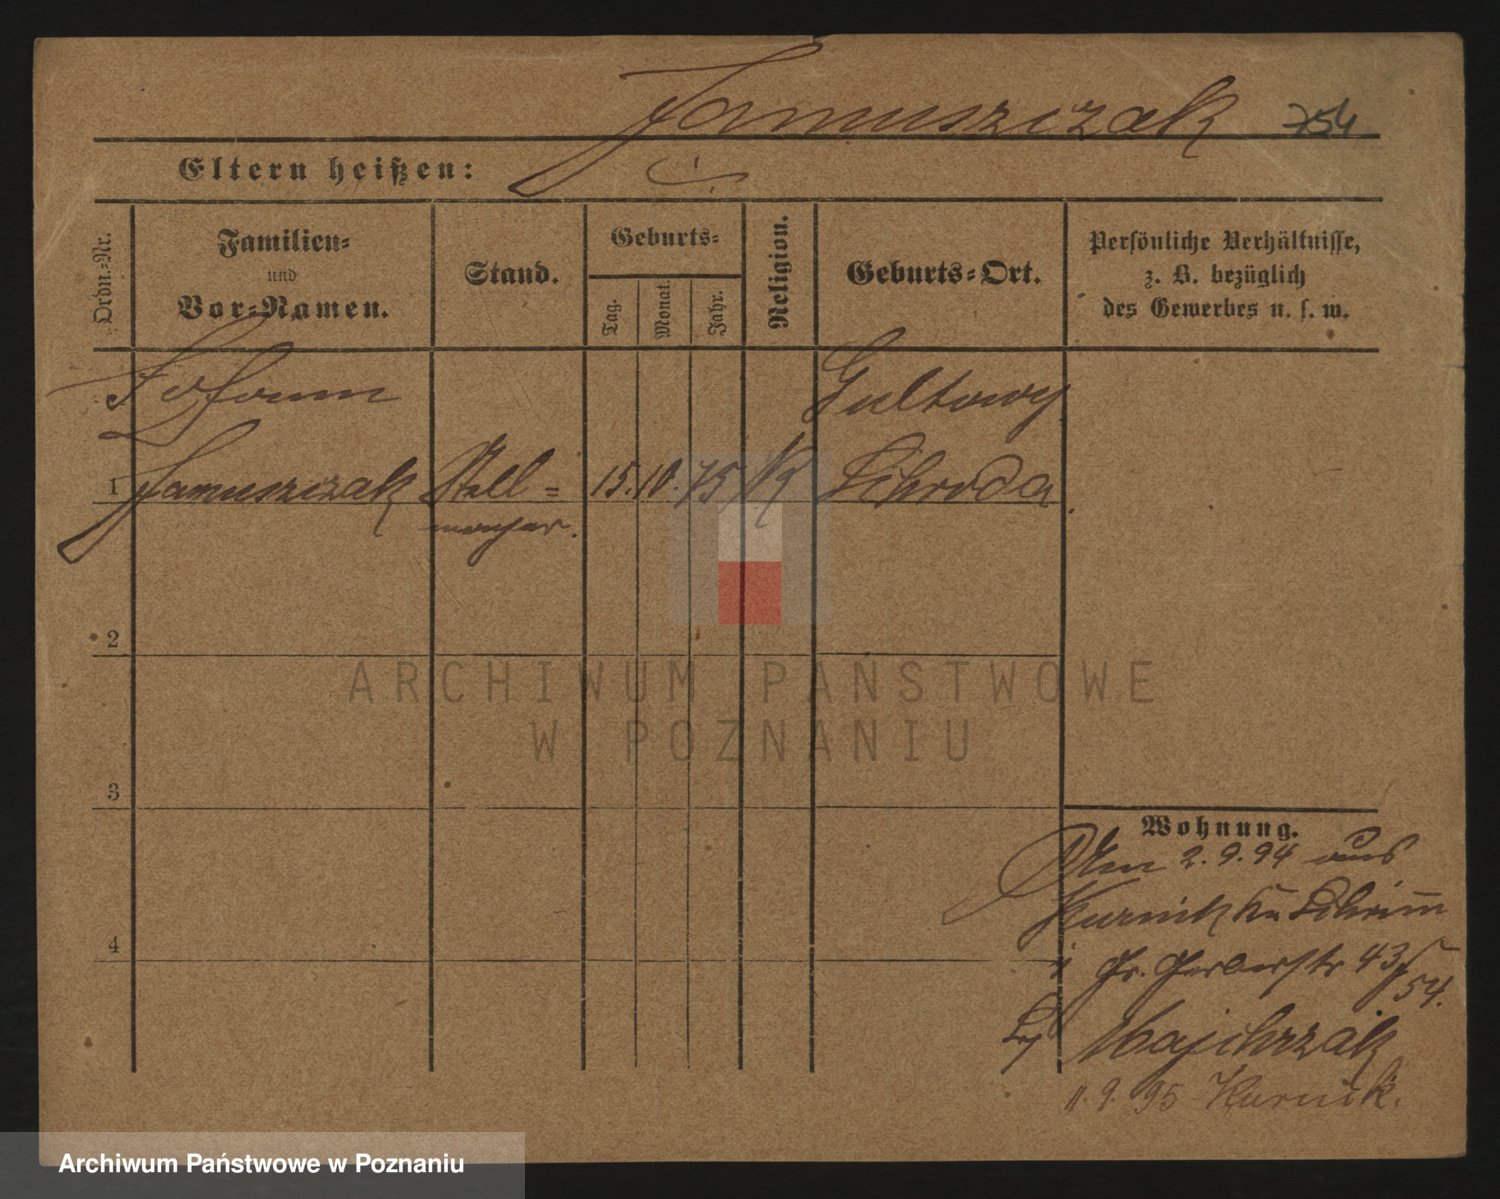 Januszczak 754
Eltern heißen:
Ordn.-Nr.
Familien-
und
Vor-Namen.
Stand.
Geburts-
Tag.
Monat.
Jahr.
Religion.
Geburts-Ort.
Persönliche Verhältnisse,
z. B. bezüglich
des Gewerbes u. s. w.
Johann
Gultowy
1 Januszczak Stell= 15. 10. 75 K Schroda
macher.
2
ARCHIWUM PAŃSTWOWE
W POZNANIU
3
Wohnung.
2.9.94 aus
Kurnik Kr Schrimm
Gr. Gerberstr 43/54.
Majchrzak
4
11.9.95 Kurnik.
Archiwum Państwowe w Poznaniu